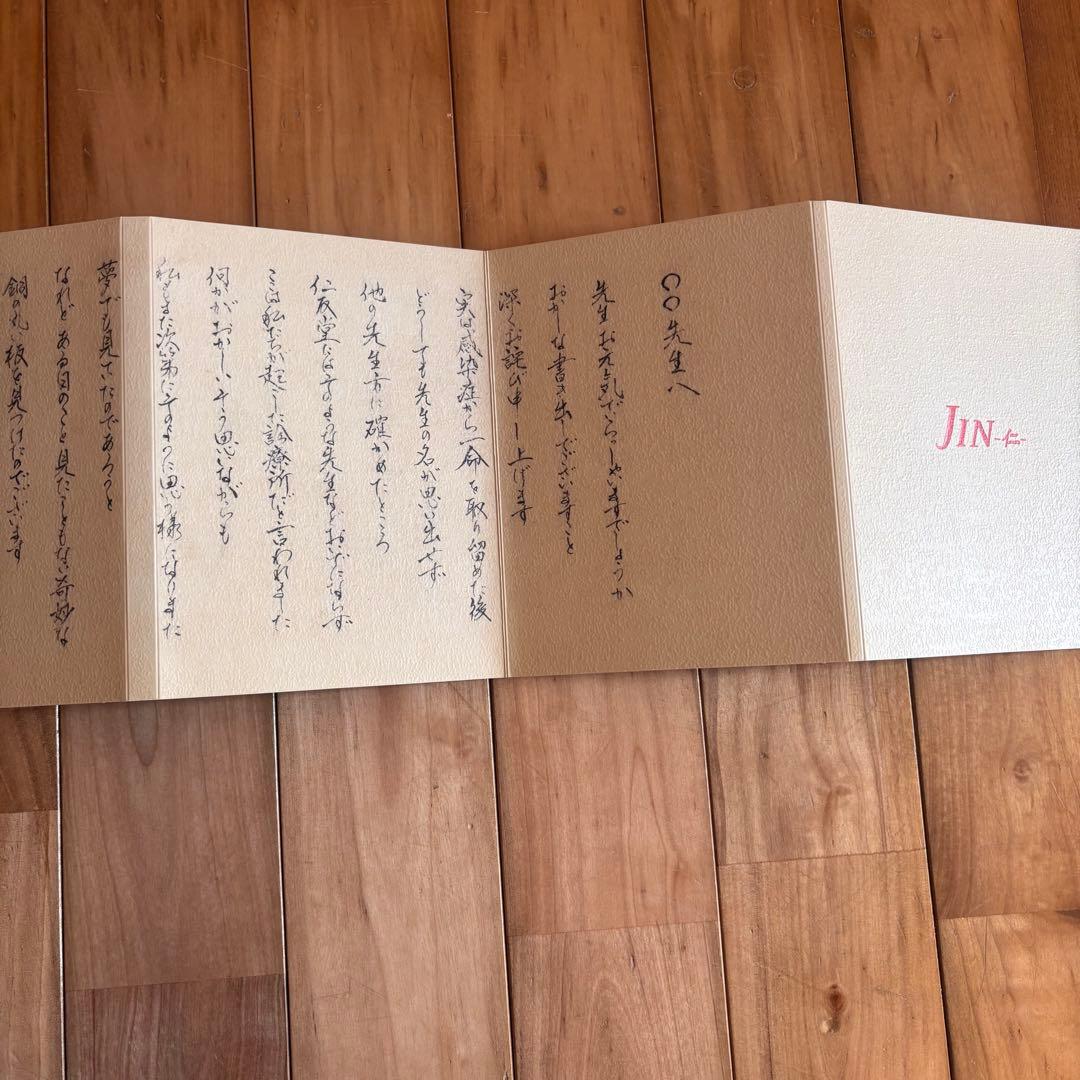 JIN-仁-
〇〇先生へ
先生お元気でいらっしゃいますでしょうか
おかしな書き出しでございますこと
深くお詫び申し上げます
実は感染症から一命を取り留めた後
どうしても先生の名が思い出せず
他の先生方に確かめたところ
仁友堂にはそのような先生などおいでにならず
ここは私たちが起こした診療所だと言われました
何かがおかしいそう思いながらも
私もまた次第にそのように思う様になりました
夢でも見ていたのであろうと
なれどある日のこと見たこともない奇妙な
銅の丸い板を見つけたのでございます